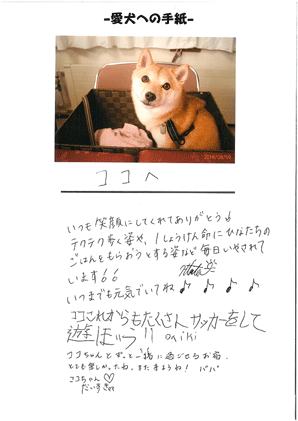 -愛犬への手紙-
2016/08/09
ココへ
いつも笑顔にしてくれてありがとう
テクテク歩く姿や、1しょうけん命にひなたちの
ごはんをもらおうとする姿など毎日いやされて
います
いつまでも元気でいてね♪ ♪ ♪ ♪
ココこれからもたくさんサッカーをして
遊ぼぅ!! Daiki
ココちゃんとずっと一緒に過ごせる
とても楽しかったね。またきようね! パパ
ココちゃん♡
だいすき